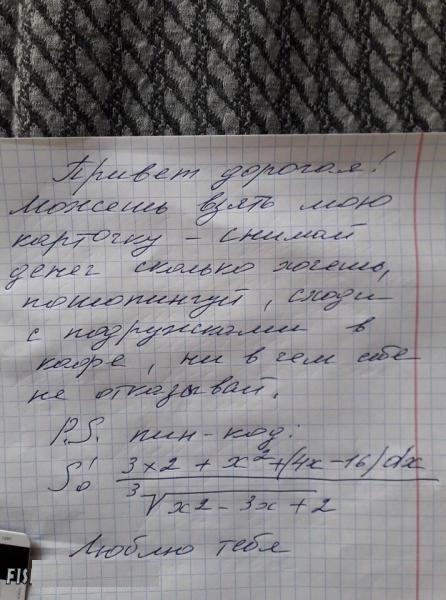 Привет дорогая!
Можешь взять мою
карточку - снимай
денег сколько хочешь,
пошопингуй, сходи
с подружками в
кафе, ни в чем себе
не отказывай.
P.S. пин-код:
∫₀¹ (3x2 + x² + (4x - 16) dx) / ∛(x2 - 3x + 2)
Люблю тебя
FIS